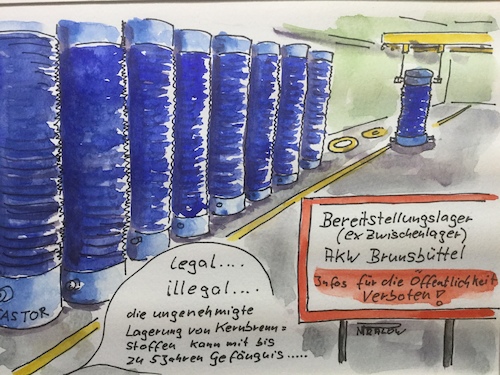 CASTOR
Bereitstellungslager
(ex Zwischenlager)
AKW Brunsbüttel
Infos für die Öffentlichkeit
Verboten!
legal....
illegal....
die ungenehmigte
Lagerung von Kernbrenn=
stoffen kann mit bis
zu 5 Jahren Gefängnis.....